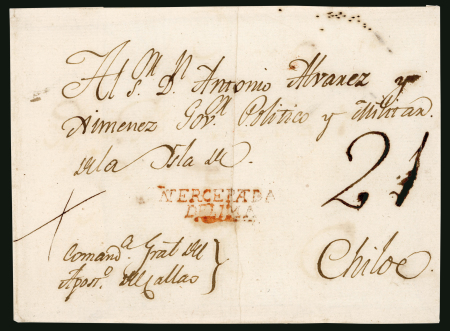 Al S.ʳ D.ⁿ Antonio Alvarez y
Ximenez Gov.ʳ Politico y Militar
de la Isla de
21
YNTERCEPADA
DE LIMA
Chiloe.
Comand.ª Gral del
Apost.º del Callao